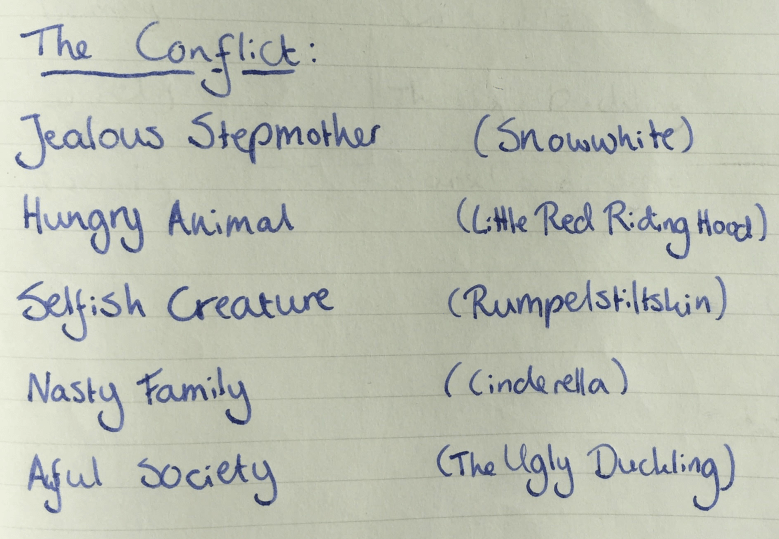 The Conflict:
Jealous Stepmother (Snowwhite)
Hungry Animal (Little Red Riding Hood)
Selfish Creature (Rumpelstiltskin)
Nasty Family (Cinderella)
Aful Society (The Ugly Duckling)